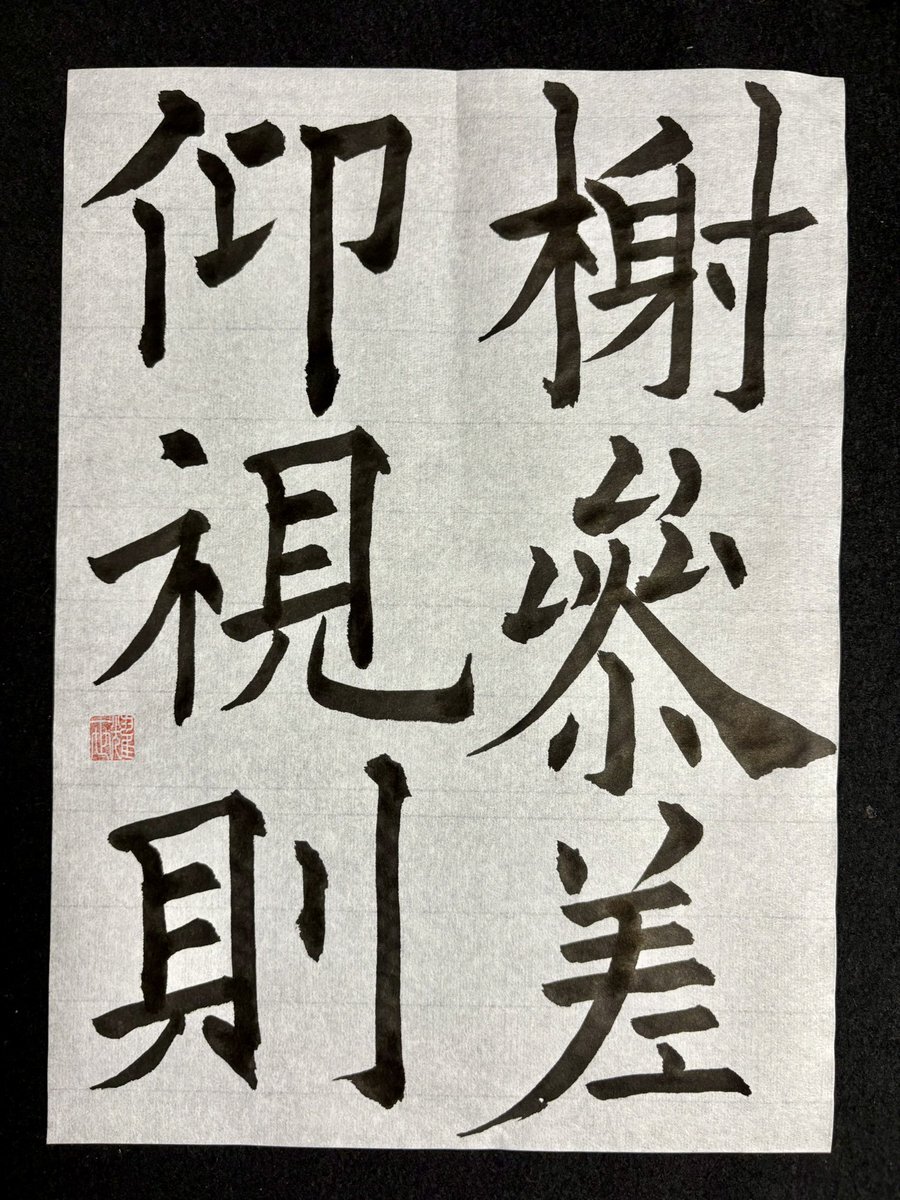 榭參差
仰視則